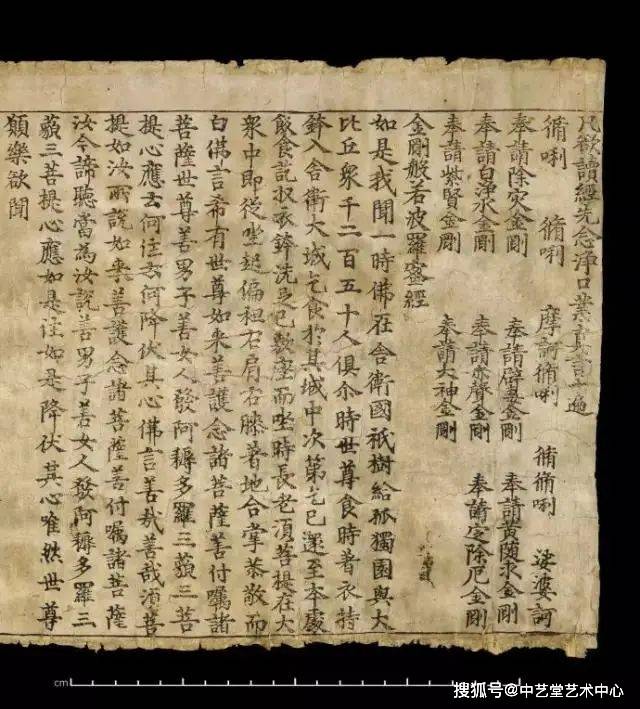 凡欲讀經先念淨口業真言一遍
脩唎 脩唎 摩訶脩唎 脩脩唎 娑婆訶
奉請除灾金剛 奉請辟毒金剛 奉請黃隨求金剛
奉請白淨水金剛 奉請赤聲金剛 奉請定除厄金剛
奉請紫賢金剛 奉請大神金剛
金剛般若波羅蜜經
如是我聞一時佛在舍衛國祇樹給孤獨園與大
比丘衆千二百五十人俱尒時世尊食時著衣持
鉢入舍衛大城乞食於其城中次第乞已還至本處
飯食訖収衣鉢洗足已敷座而坐時長老須菩提在大
衆中即從坐起偏袒右肩右膝著地合掌恭敬而
白佛言希有世尊如来善護念諸菩薩善付囑諸
菩薩世尊善男子善女人發阿耨多羅三藐三菩
提心應云何住云何降伏其心佛言善哉善哉須菩
提如汝所說如来善護念諸菩薩善付囑諸菩薩
汝今諦聽當為汝說善男子善女人發阿耨多羅三
藐三菩提心應如是住如是降伏其心唯然世尊
願樂欲聞
cm
搜狐号@中艺堂艺术中心